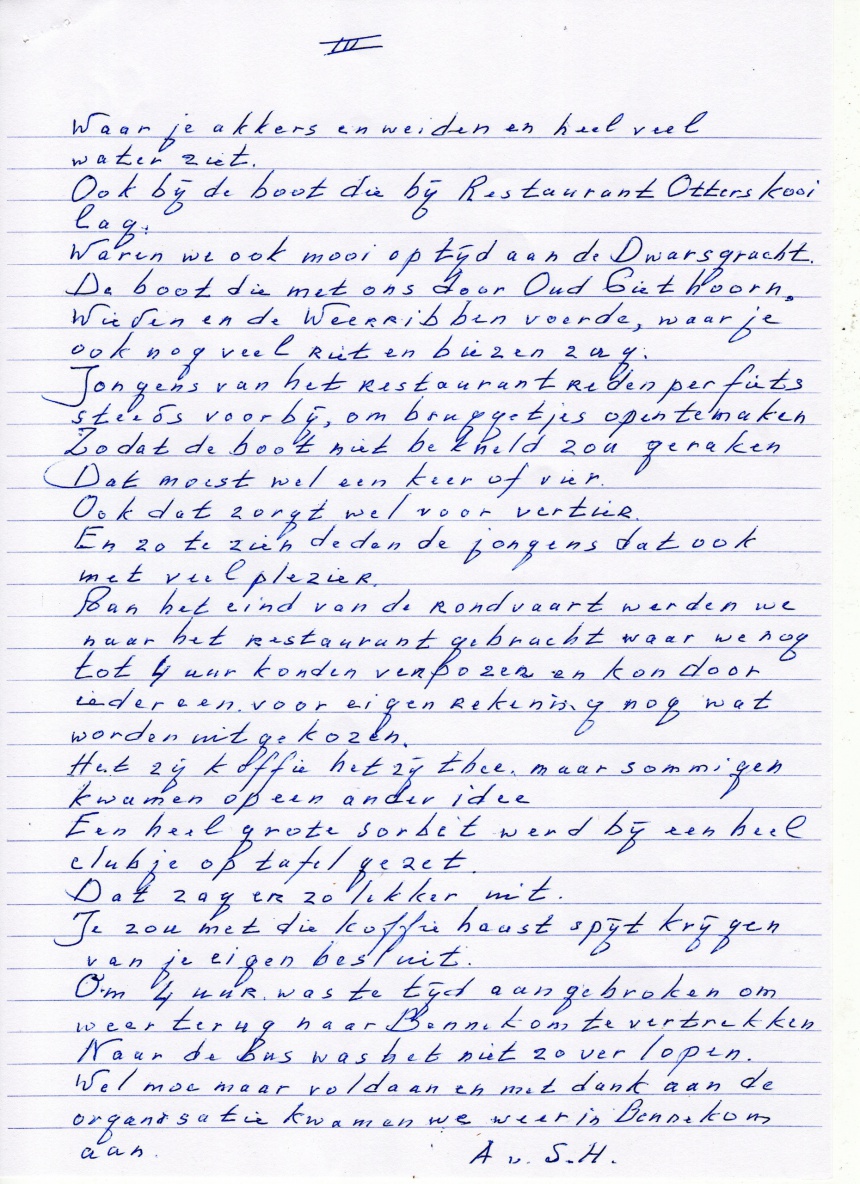 III
Waar je akkers en weiden en heel veel
water ziet.
Ook bij de boot die bij Restaurant Otterskooi
lag.
Waren we ook mooi op tijd aan de Dwarsgracht.
De boot die met ons door Oud Giethoorn,
Wieden en de Weerribben voerde, waar je
ook nog veel riet en biezen zag.
Jongens van het restaurant reden per fiets
steeds voorbij, om bruggetjes open te maken
Zodat de boot niet bekneld zou geraken
Dat moest wel een keer of vier.
Ook dat zorgt wel voor vertier.
En zo te zien deden de jongens dat ook
met veel plezier.
Aan het eind van de rondvaart werden we
naar het restaurant gebracht waar we nog
tot 4 uur konden verpozen en kon door
iedereen voor eigen rekening nog wat
worden uitgekozen.
Het zij koffie het zij thee. maar sommigen
kwamen op een ander idee
Een heel grote sorbet werd bij een heel
clubje op tafel gezet.
Dat zag er zo lekker uit.
Je zou met die koffie haast spijt krijgen
van je eigen besluit.
Om 4 uur was te tijd aangebroken om
weer terug naar Bennekom te vertrekken
Naar de bus was het niet zo ver lopen.
Wel moe maar voldaan en met dank aan de
organisatie kwamen we weer in Bennekom
aan.
A v. S.H.